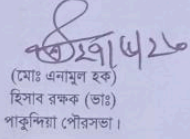 (মোঃ এনামুল হক)
হিসাব রক্ষক (ভাঃ)
পাকুন্দিয়া পৌরসভা।